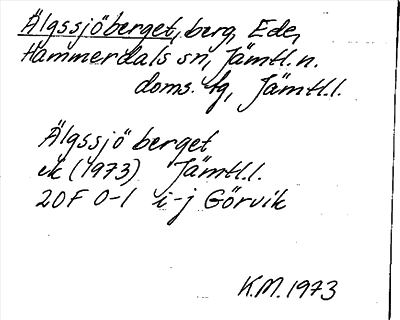 Älgssjöberget, berg, Ede,
Hammerdals sn, Jämtl.n.
doms. fg, Jämtl.l.
Älgssjöberget
ek (1973) Jämtl.l.
20F 0-1 i-j Görvik
K.M. 1973